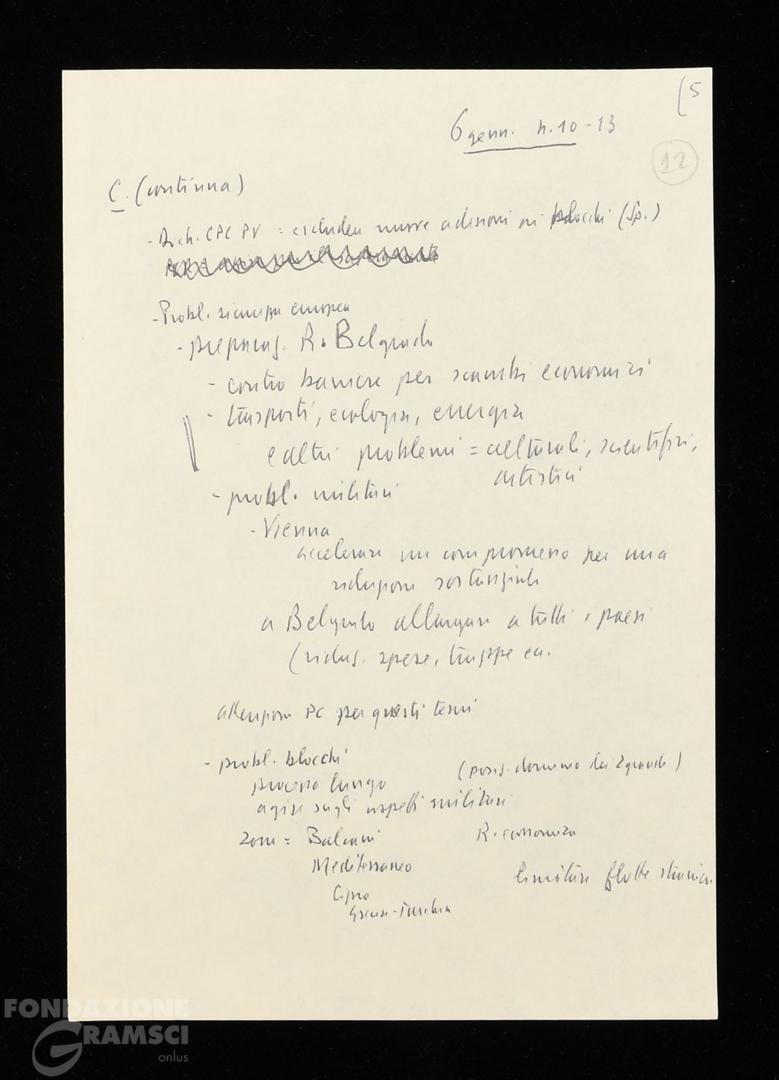 (5
6 genn. h. 10-13
12
C. (continua)
- Dich. CPC PV = escludere nuove adesioni ai blocchi (Sp.)
- Probl. sicurezza europea
- preparaz. R. Belgrado
- contro barriere per scambi economici
- trasporti, ecologia, energia
e altri problemi = culturali, scientifici,
artistici
- probl. militari
- Vienna
accelerare un compromesso per una
riduzione sostanziale
a Belgrado allargare a tutti i paesi
(riduz. spese, truppe ecc.
attenzione PC per questi temi
- probl. blocchi
processo lungo (posiz. dominio dei 2 grandi)
agire sugli aspetti militari
zone = Balcani R. economica
Mediterraneo
limitare flotte straniere
Cipro
Grecia-Turchia
FONDAZIONE
GRAMSCI
onlus